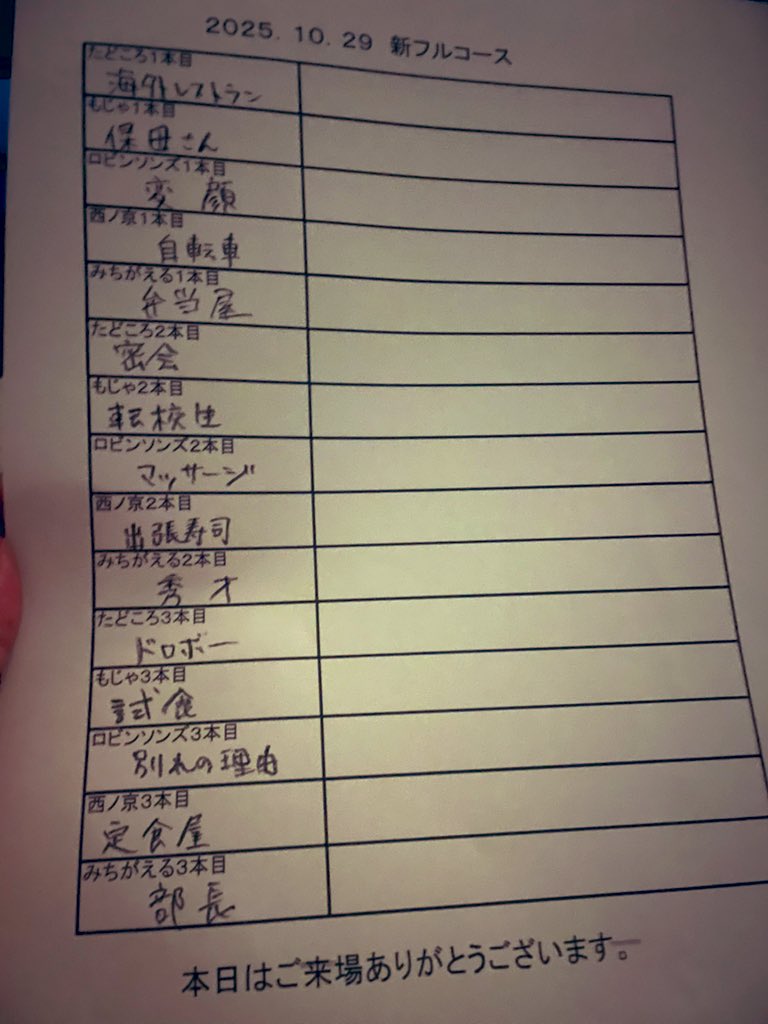 2025.10.29 新フルコース
たどころ1本目
海外レストラン
もじゃ1本目
保母さん
ロビンソンズ1本目
変顔
西ノ京1本目
自転車
みちがえる1本目
弁当屋
たどころ2本目
密会
もじゃ2本目
転校生
ロビンソンズ2本目
マッサージ
西ノ京2本目
出張寿司
みちがえる2本目
秀才
たどころ3本目
ドロボー
もじゃ3本目
試食
ロビンソンズ3本目
別れの理由
西ノ京3本目
定食屋
みちがえる3本目
部長
本日はご来場ありがとうございます。